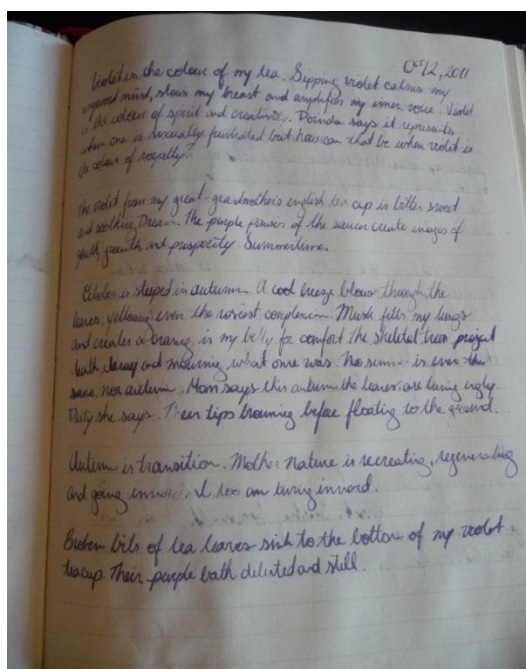 Oct 12, 2011
Violet is the colour of my tea. Sipping violet calms my
mind, slows my breast and amplifies my inner voice. Violet
is the colour of spirit and creativity. Dorinda says it represents
when one is sexually frustrated but how can that be when violet is
the colour of royalty?
The violet from my great-grandmother's english tea cup is bitter sweet
and soothing. Dream. The purple pansies of the saucer create images of
youth, growth and prosperity. Summertime.
October is steeped in autumn. A cool breeze blows through the
leaves, yellowing even the rosiest complexion. Musk fills my lungs
and creates a craving in my belly for comfort. The skeletal trees project
death, decay and mourning, what once was. No summer is ever the
same, nor autumn. Mom says this autumn the leaves are turing ugly.
Dirty she says. Their tips browning before floating to the ground.
Autumn is transition. Mother Nature is recreating, regenerating
and going inward. I too am turing inward.
Broken bits of tea leaves sink to the bottom of my violet
teacup. Their purple bath diluted and still.